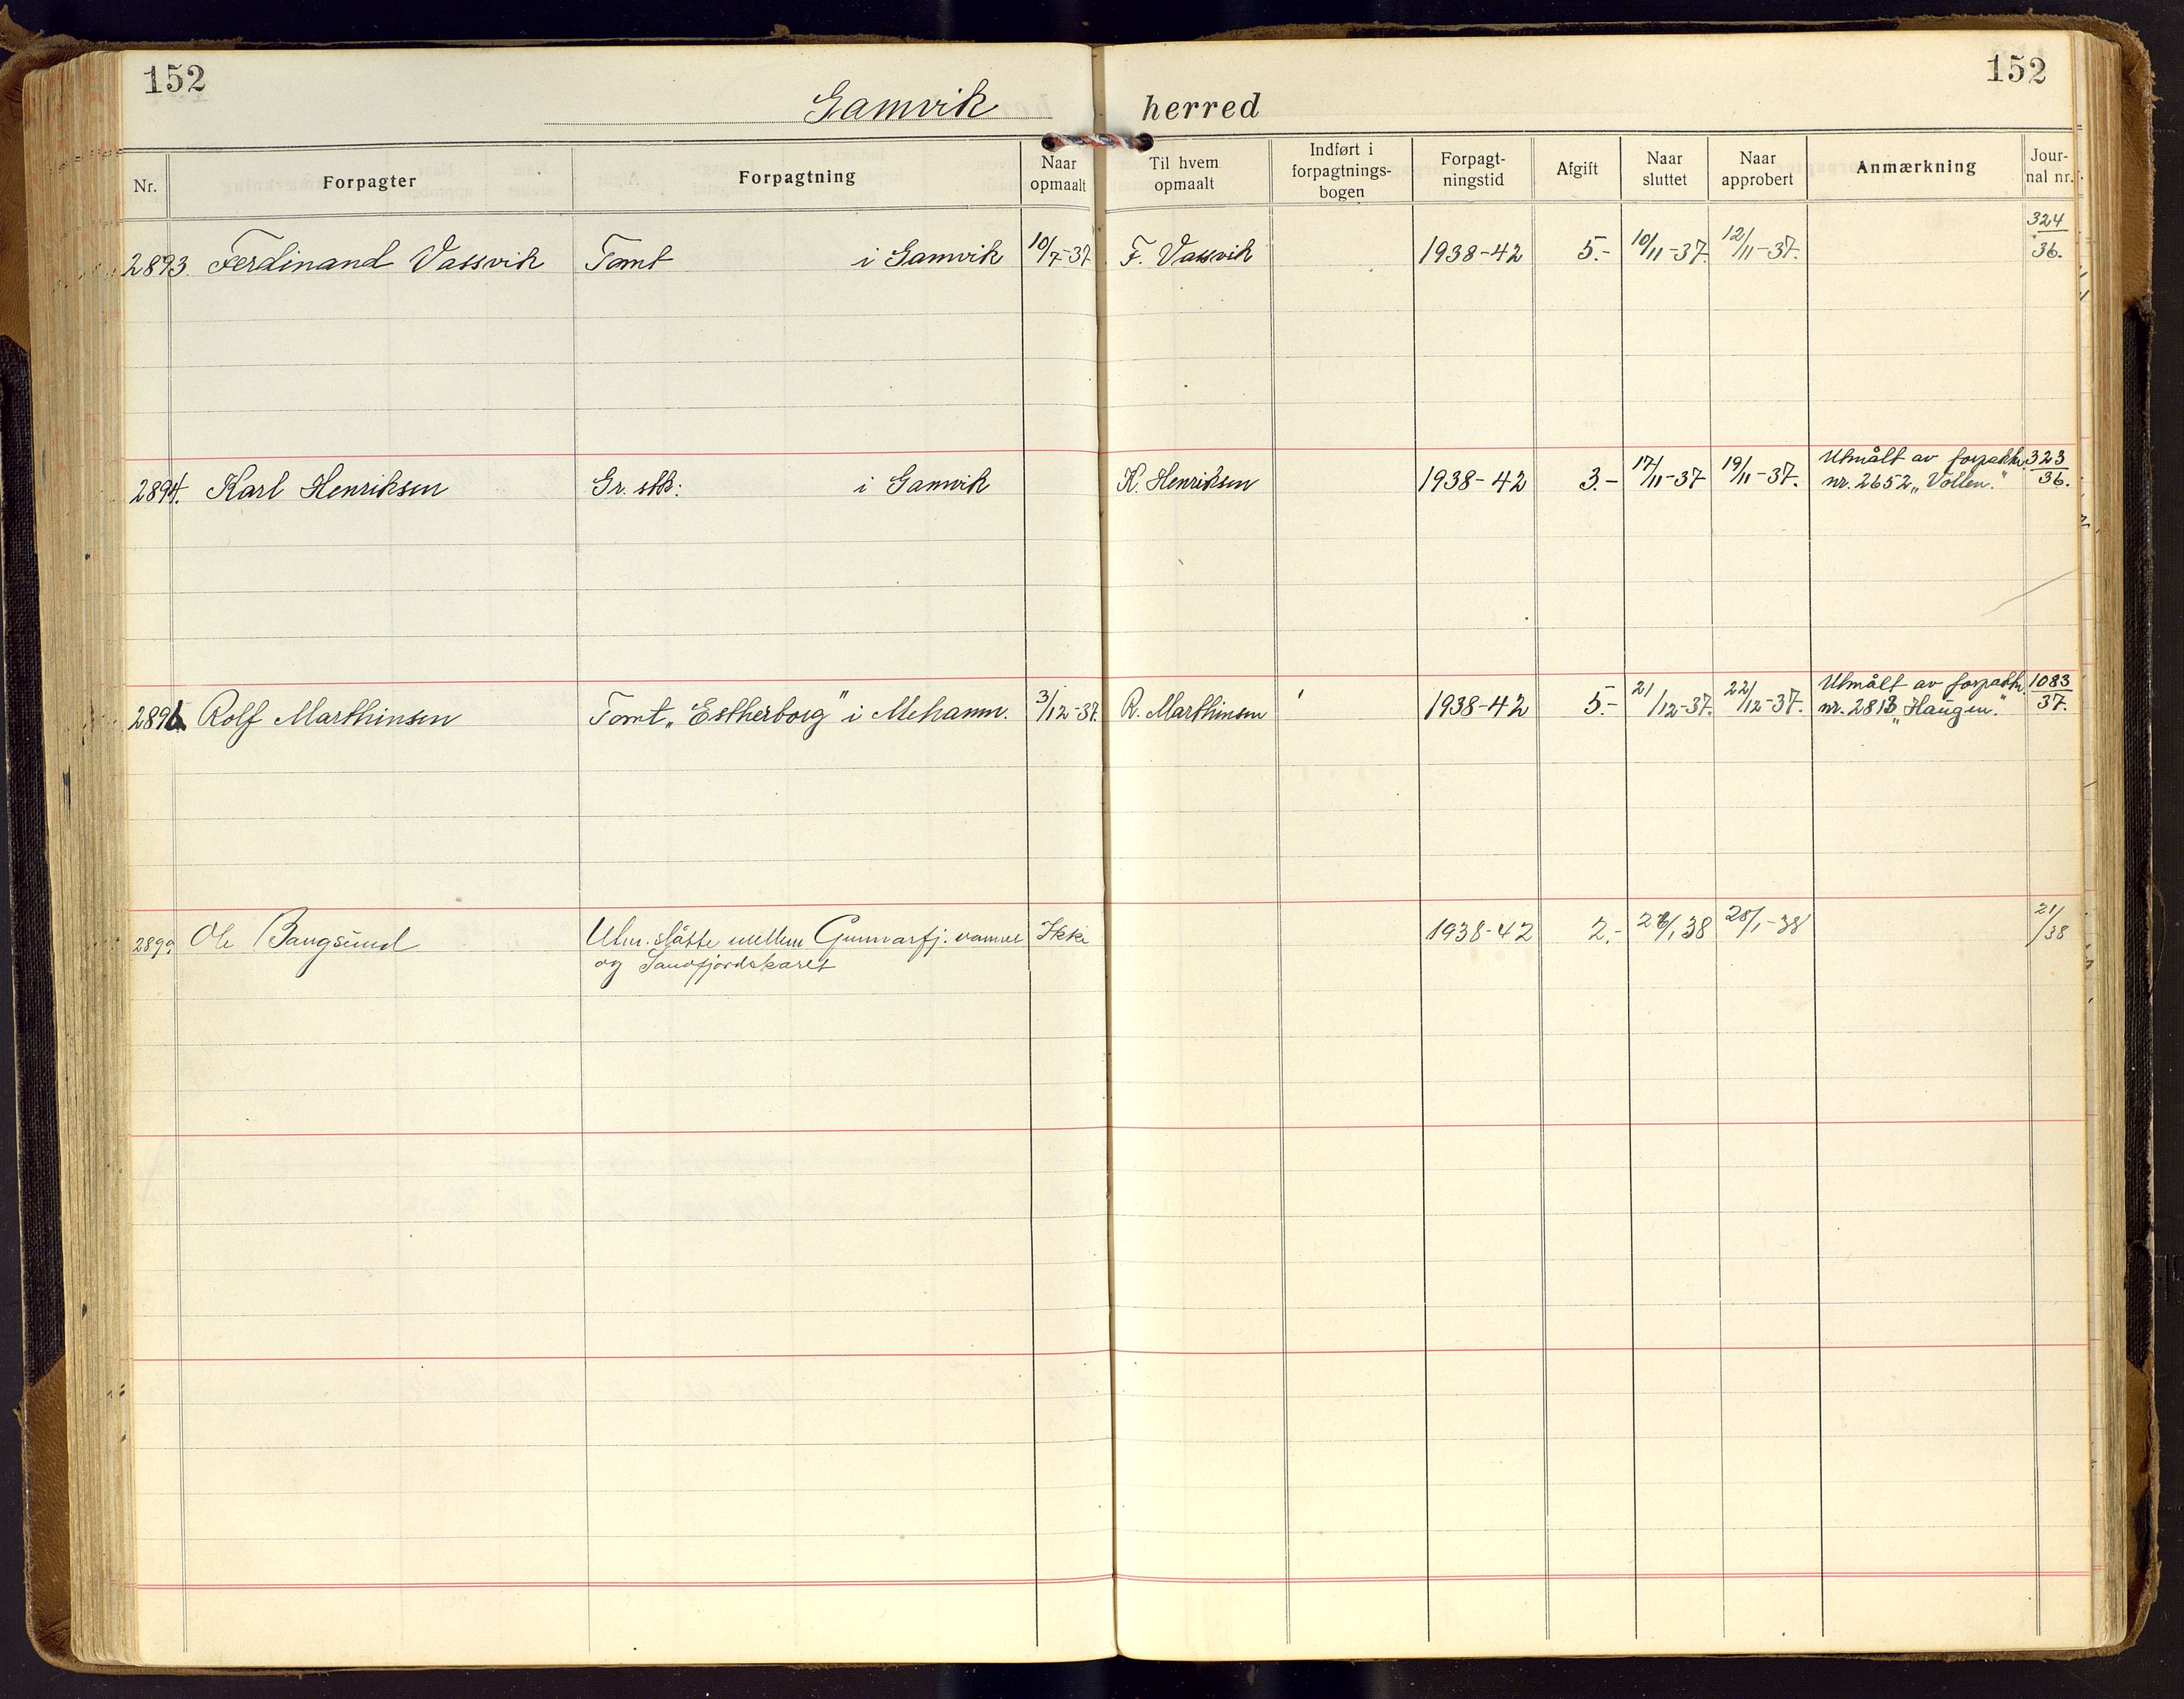 152
152
Gamvik herred
Nr. Forpagter Forpagtning Naar opmaalt Til hvem opmaalt Indført i forpagtnings-bogen Forpagt-ningstid Afgift Naar sluttet Naar approbert Anmærkning Jour-nal nr.
2893. Ferdinand Vassvik Tomt i Gamvik 10/7-37 F. Vassvik 1938-42 5.- 10/11-37. 12/11-37. 324/36.
2894. Karl Henriksen Gr. stk: i Gamvik K. Henriksen 1938-42 3.- 17/11-37 19/11-37. Utmålt av forpaktn. 323/36.
nr. 2652 „Vollen."
2896 Rolf Marthinsen Tomt „Estherborg" i Mehamn. 3/12-37. R. Marthinsen 1938-42 5.- 21/12-37. 22/12-37. Utmålt av forpaktn. 1083/37.
nr. 2813 „Haugen."
2899. Ole Bangsund Utm. slåtte mellem Gunnarfj. vannet Ikke 1938-42 2.- 28/1-38 21/38
og Sandfjordskaret